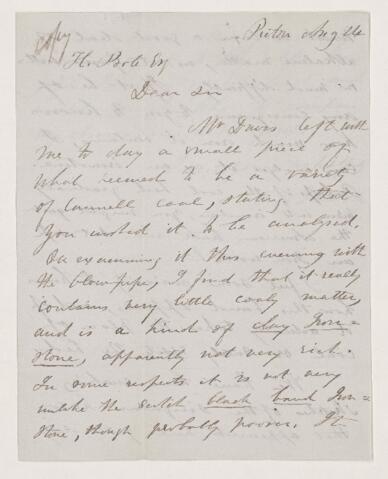 copy
Picton Aug 24
H. Poole Esq
Dear Sir
Mr Davis left with
me to day a small piece of
what seemed to be a variety
of cannell coal, stating that
you wished it to be analysed.
On examining it this evening with
the blowpipe, I find that it really
contains very little coaly matter,
and is a kind of clay Iron=
stone, apparently not very rich.
In some respects it is not very
unlike the Scotch black band Iron=
stone, though probably poorer. It